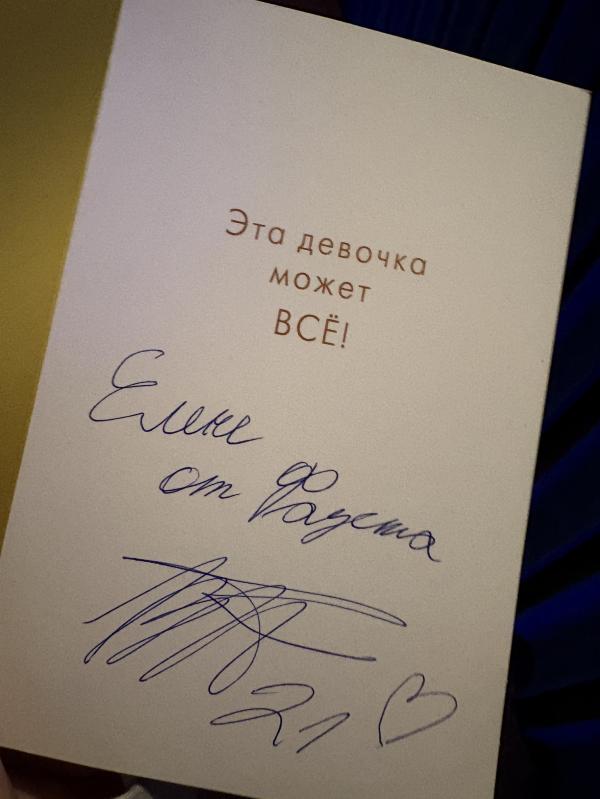 Эта девочка
может
ВСЁ!
Елене
от Фауста
21